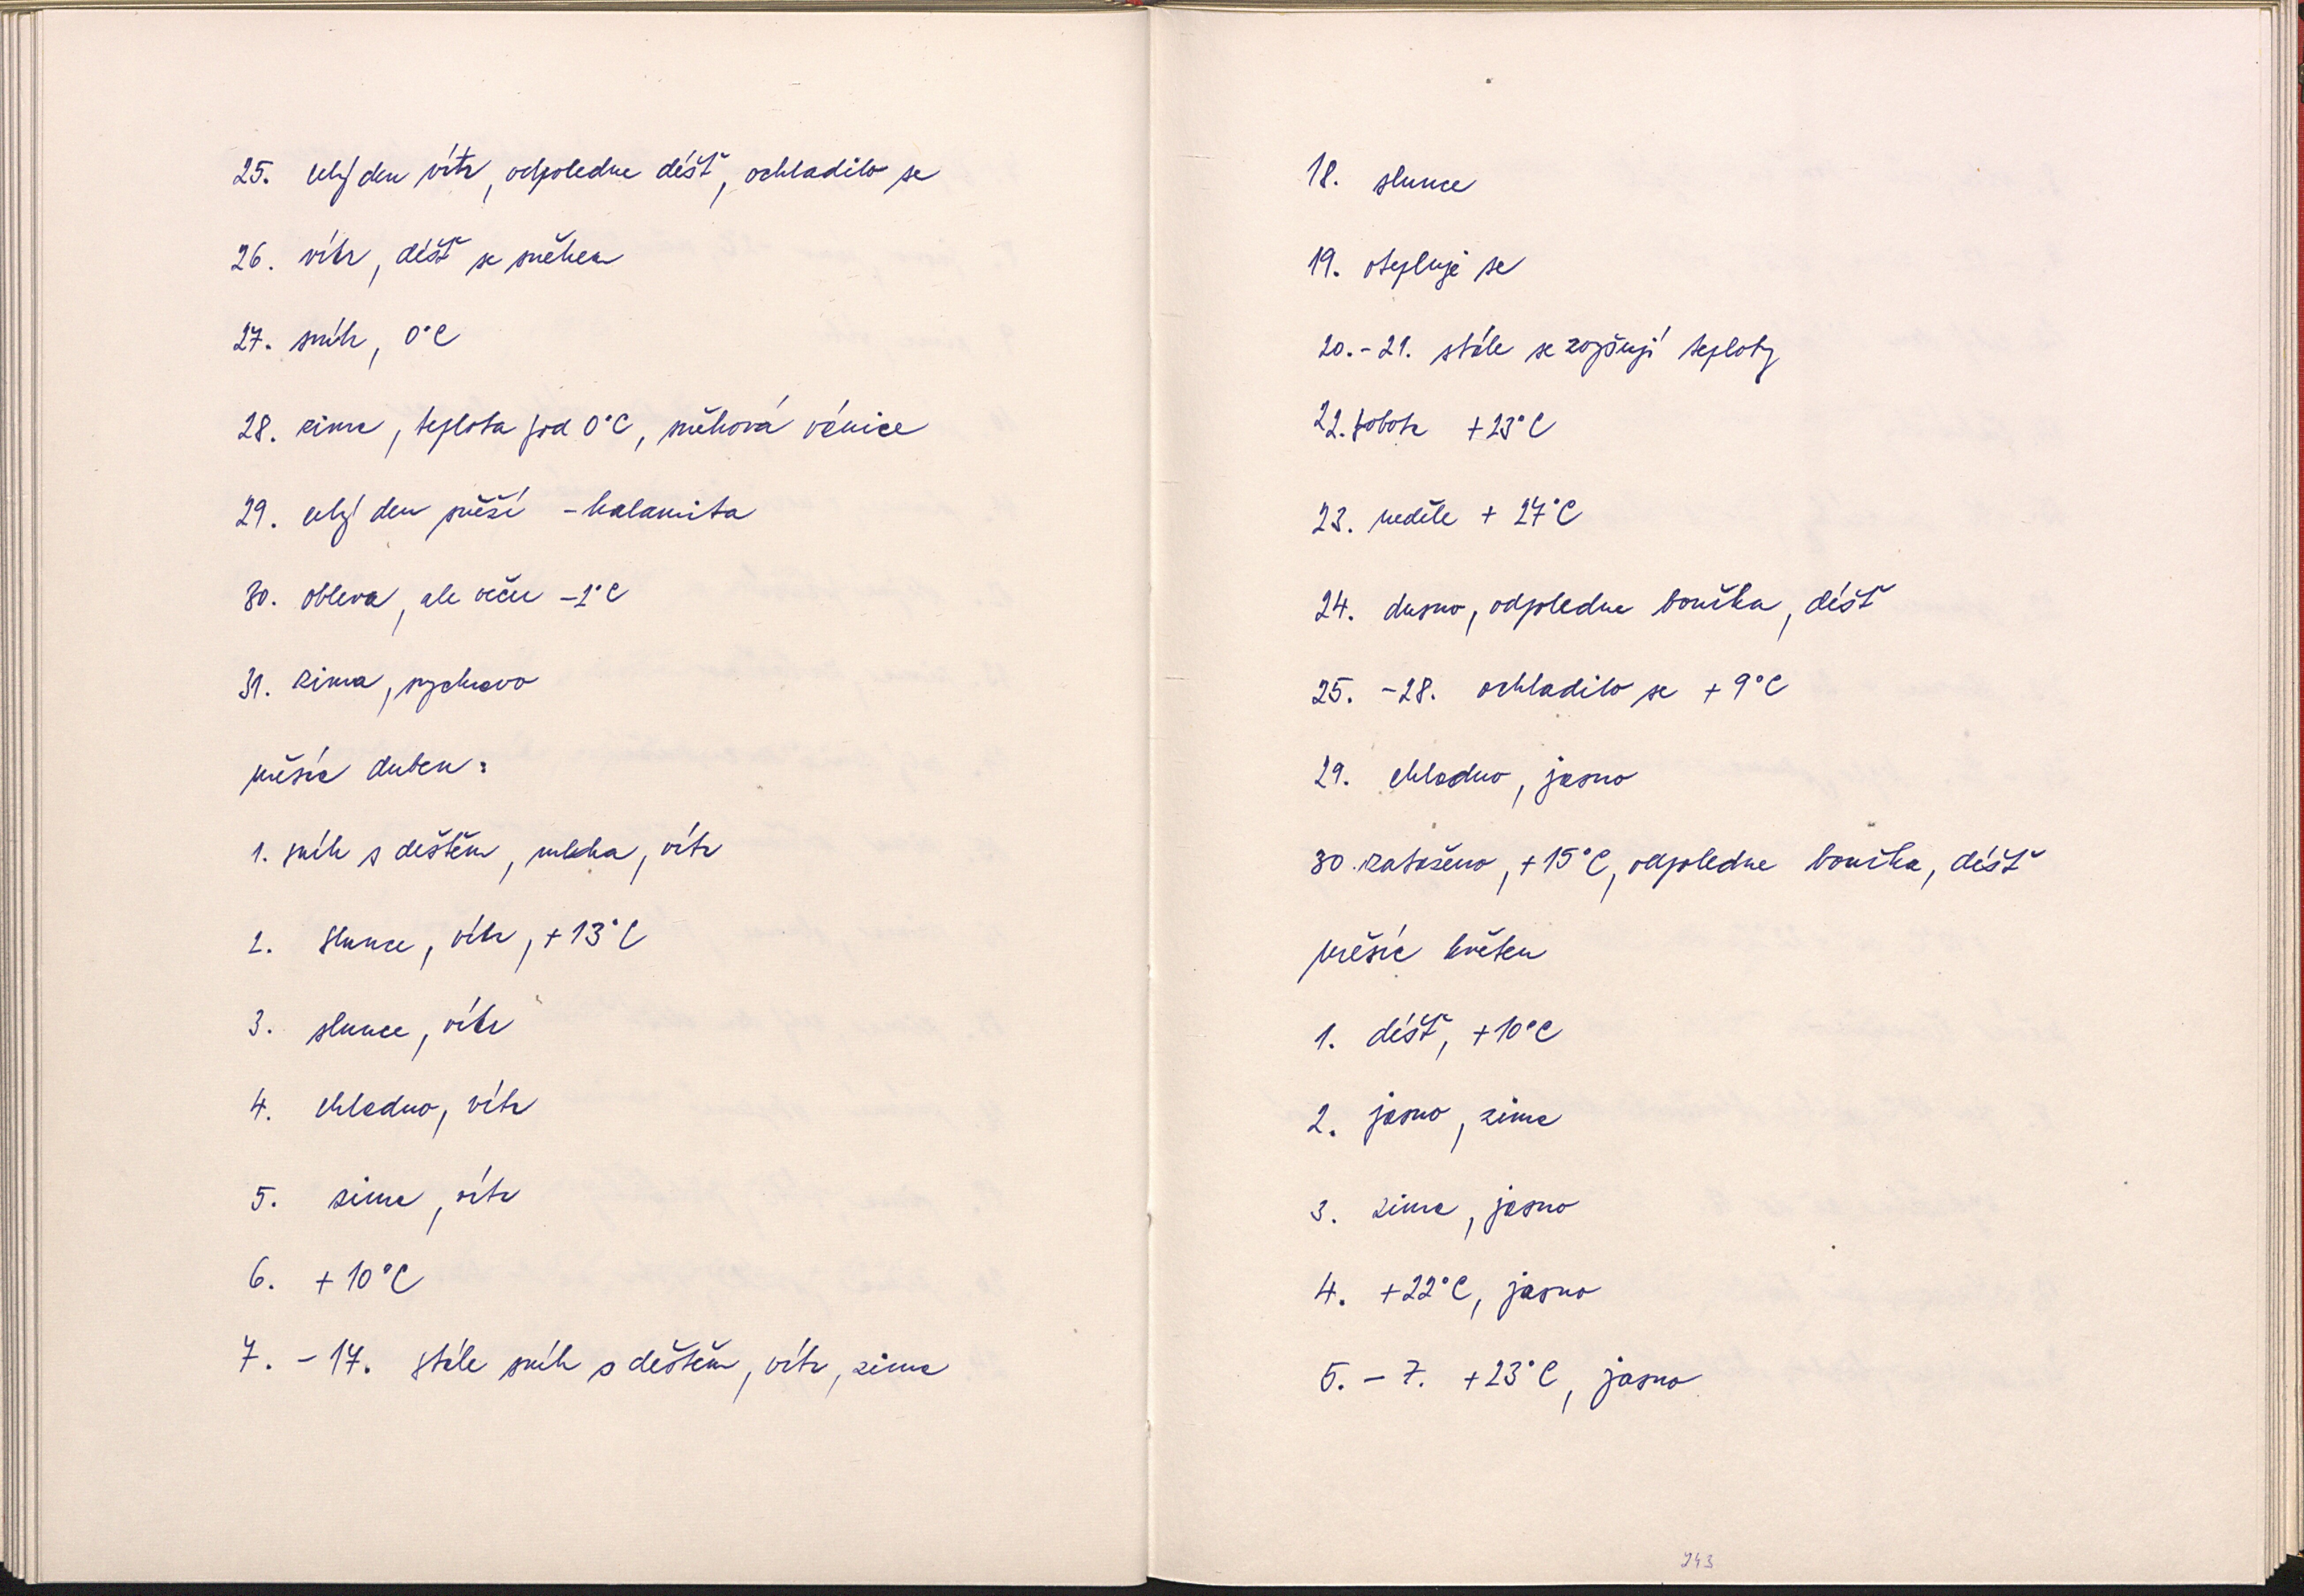 25. celý den vítr, odpoledne déšť, ochladilo se
26. vítr, déšť se sněhem
27. sníh, 0°C
28. zima, teplota pod 0°C, sněhová vánice
29. celý den sněží - kalamita
30. obleva, ale večer -1°C
31. zima, sychravo
měsíc duben:
1. sníh s deštěm, mlha, vítr
2. slunce, vítr, +13°C
3. slunce, vítr
4. chladno, vítr
5. zima, vítr
6. +10°C
7. - 17. stále sníh s deštěm, vítr, zima
18. slunce
19. otepluje se
20. - 21. stále se zvyšují teploty
22. sobota +23°C
23. neděle + 27°C
24. dusno, odpoledne bouřka, déšť
25. - 28. ochladilo se + 9°C
29. chladno, jasno
30. zataženo, +15°C, odpoledne bouřka, déšť
měsíc květen
1. déšť, +10°C
2. jasno, zima
3. zima, jasno
4. +22°C, jasno
5. - 7. +23°C, jasno
243